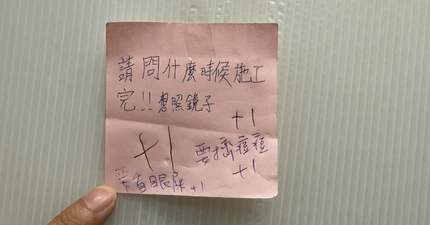 請問什麼時候施工
完!!想照鏡子
+1
+1 要擠痘痘
+1
要看眼屎 +1